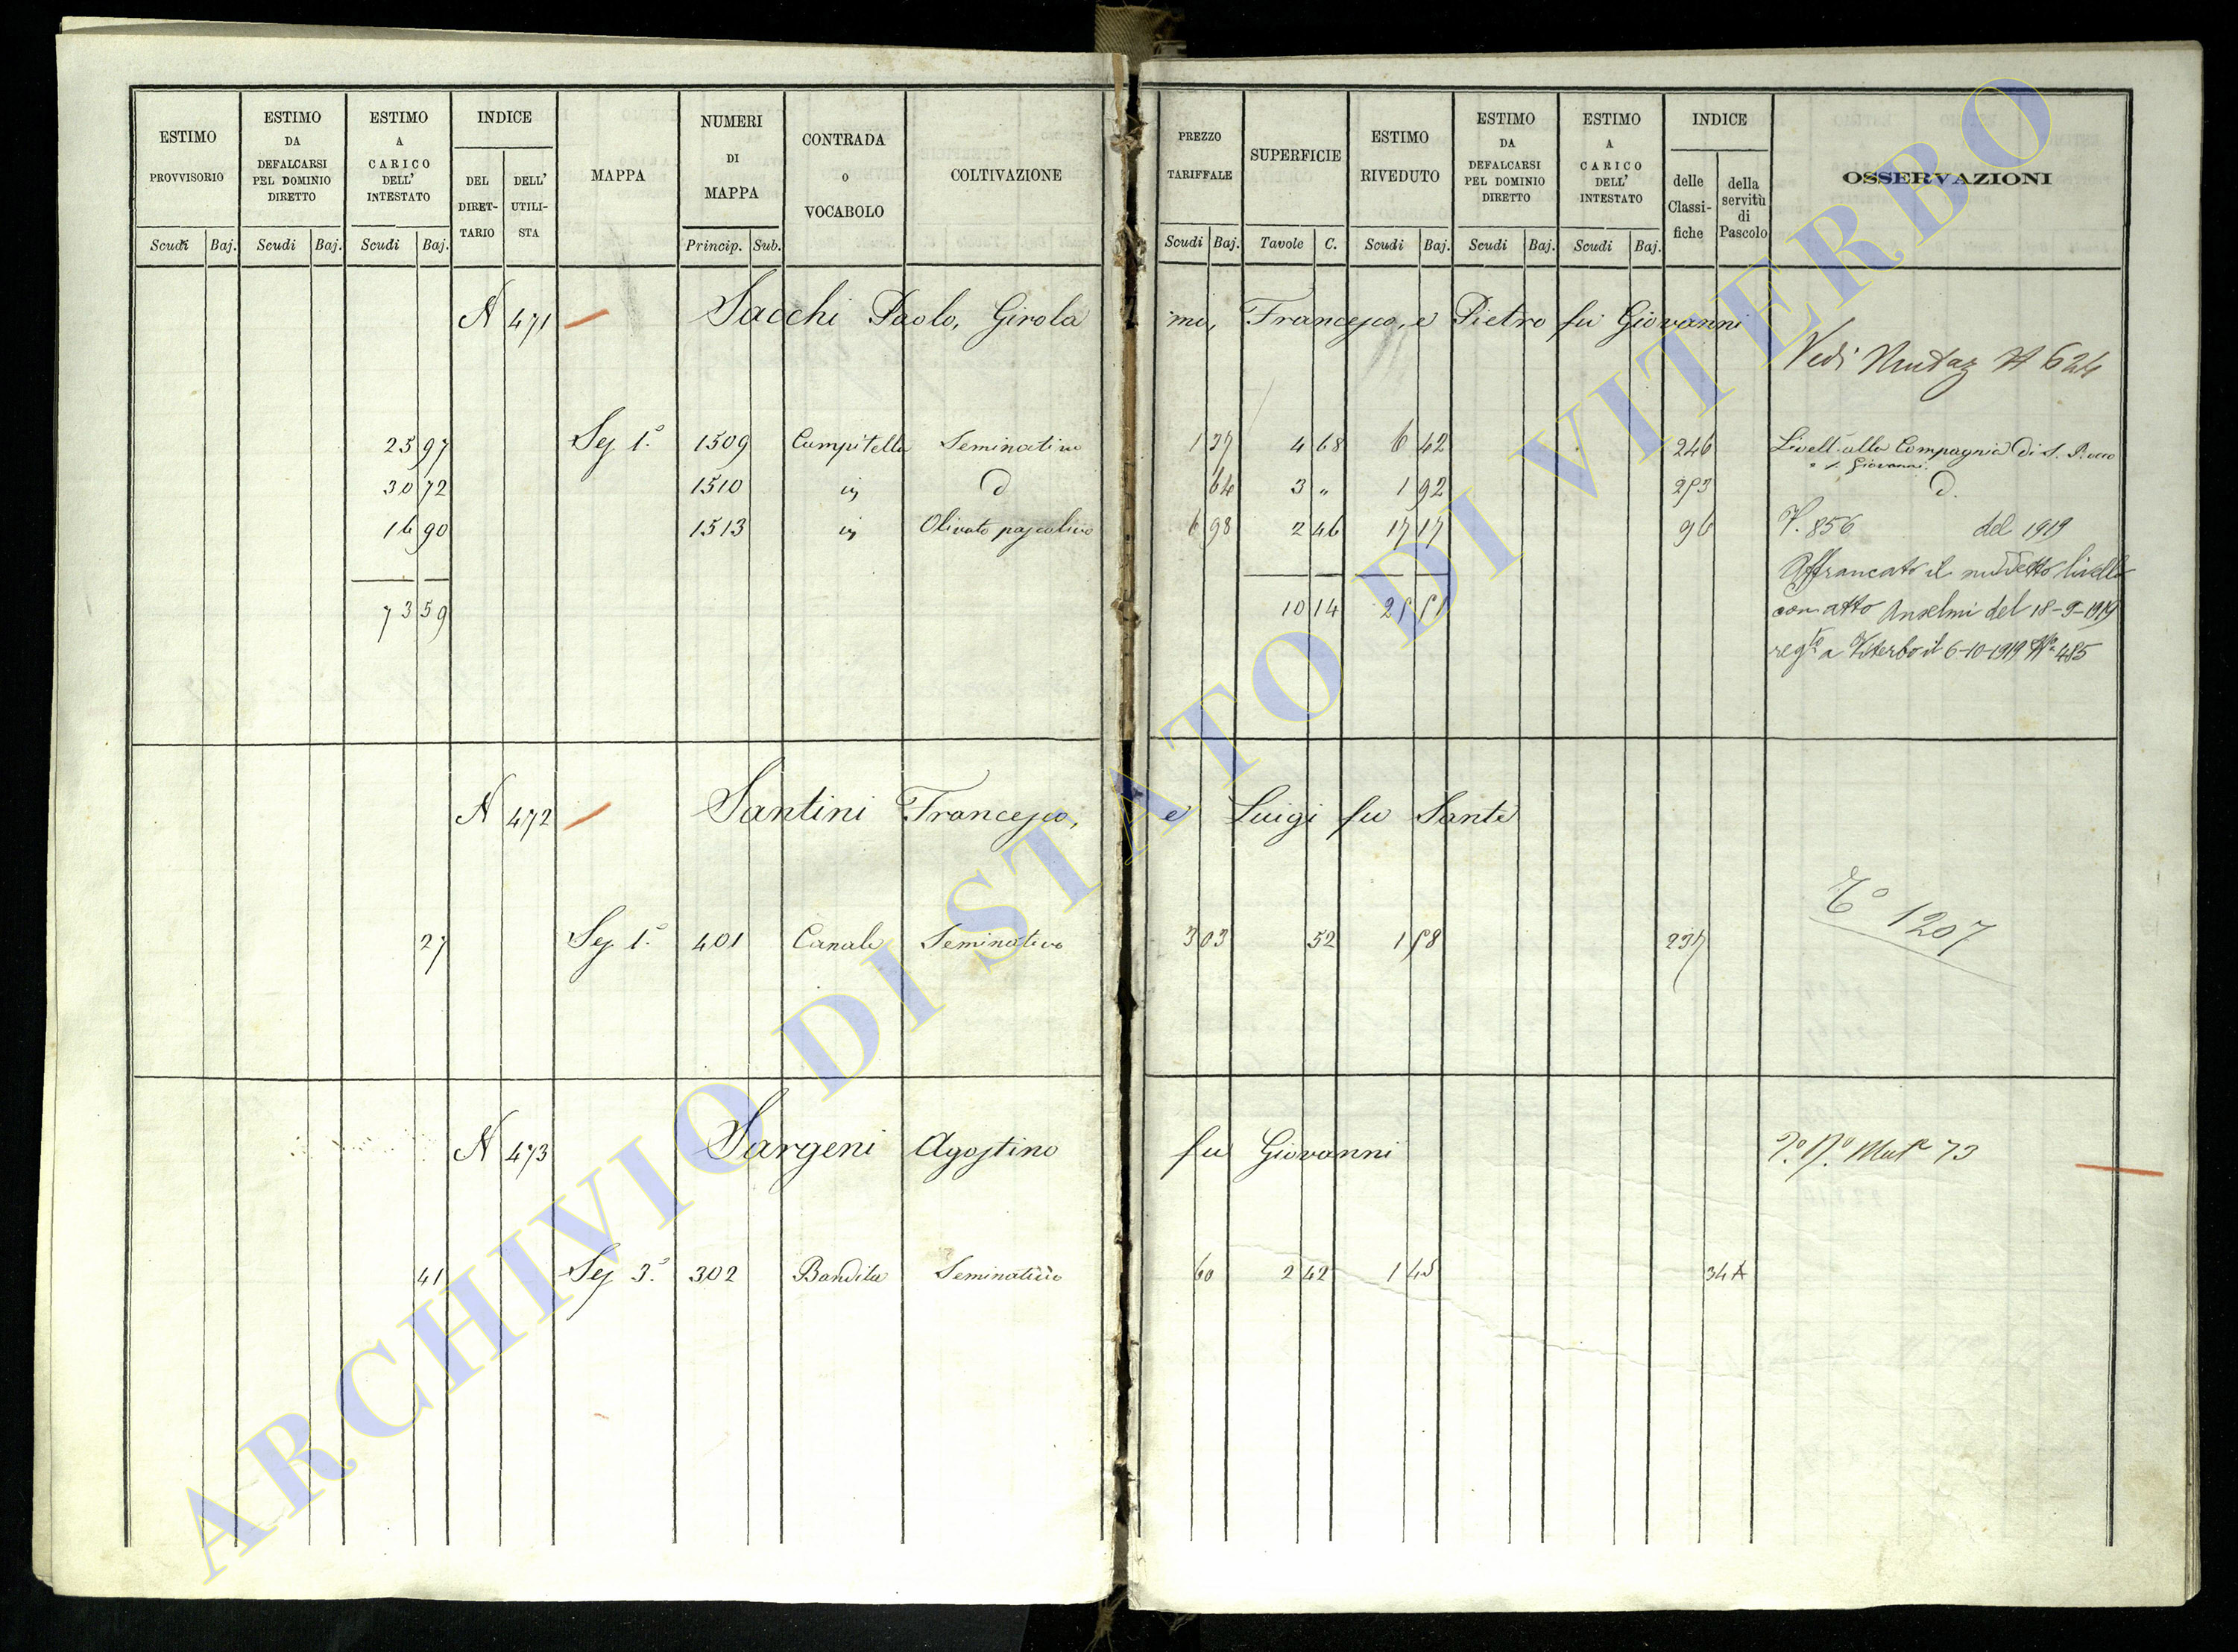 ESTIMO PROVVISORIO
ESTIMO DA DEFALCARSI PEL DOMINIO DIRETTO
ESTIMO A CARICO DELL' INTESTATO
INDICE
DEL DIRET-TARIO
DELL' UTILI-STA
MAPPA
NUMERI DI MAPPA
CONTRADA O VOCABOLO
COLTIVAZIONE
PREZZO TARIFFALE
SUPERFICIE
ESTIMO RIVEDUTO
ESTIMO DA DEFALCARSI PEL DOMINIO DIRETTO
ESTIMO A CARICO DELL' INTESTATO
INDICE
delle Classi-fiche
della servitù di Pascolo
OSSERVAZIONI
Scudi Baj. Scudi Baj. Scudi Baj. Princip. Sub. Scudi Baj. Tavole C. Scudi Baj. Scudi Baj. Scudi Baj.
N 471 Sacchi Paolo, Girola mo, Francesco, e Pietro fu Giovanni
Vedi Mutaz N 624
25 97 Sez 1.a 1509 Campitella Seminativo 1 37 4 68 6 42 246 Livell. alla Compagnia di S. Rocco
e S. Giovanni.
30 72 1510 in d 64 3 " 1 92 253 d.
16 90 1513 in Olivato pascolivo 6 98 2 46 17 17 96 V. 856 del 1919
Affrancato il suddetto livello
73 59 10 14 25 51 con atto Anselmi del 18-9-1919
reg.to a Viterbo il 6-10-1919 N.o 485
N 472 Santini Francesco, e Luigi fu Sante
1207
27 Sez 1.a 401 Canale Seminativo 3 03 52 1 58 237
N 473 Sargeni Agostino fu Giovanni
73
41 Sez 3.a 302 Bandita Seminativo 60 2 42 1 45 34
ARCHIVIO DI STATO DI VITERBO